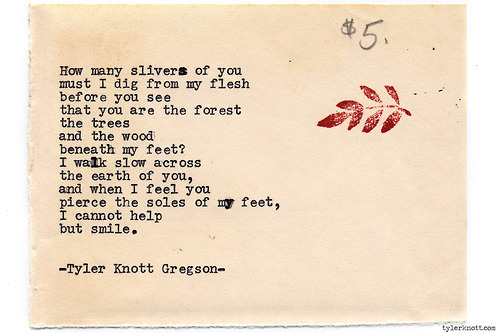 $5.
How many slivers of you
must I dig from my flesh
before you see
that you are the forest
the trees
and the wood
beneath my feet?
I walk slow across
the earth of you,
and when I feel you
pierce the soles of my feet,
I cannot help
but smile.
-Tyler Knott Gregson-
tylerknott.com